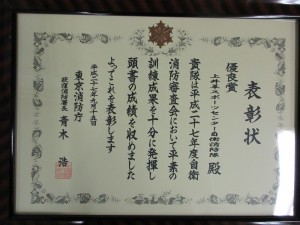 表彰状
優良賞
上井草スポーツセンター自衛消防隊 殿
貴隊は平成二十七年度自衛
消防審査会において平素の
訓練成果を十分に発揮し
頭書の成績を収めました
よってこれを表彰します
平成二十七年九月十五日
東京消防庁
荻窪消防署長 青木 浩